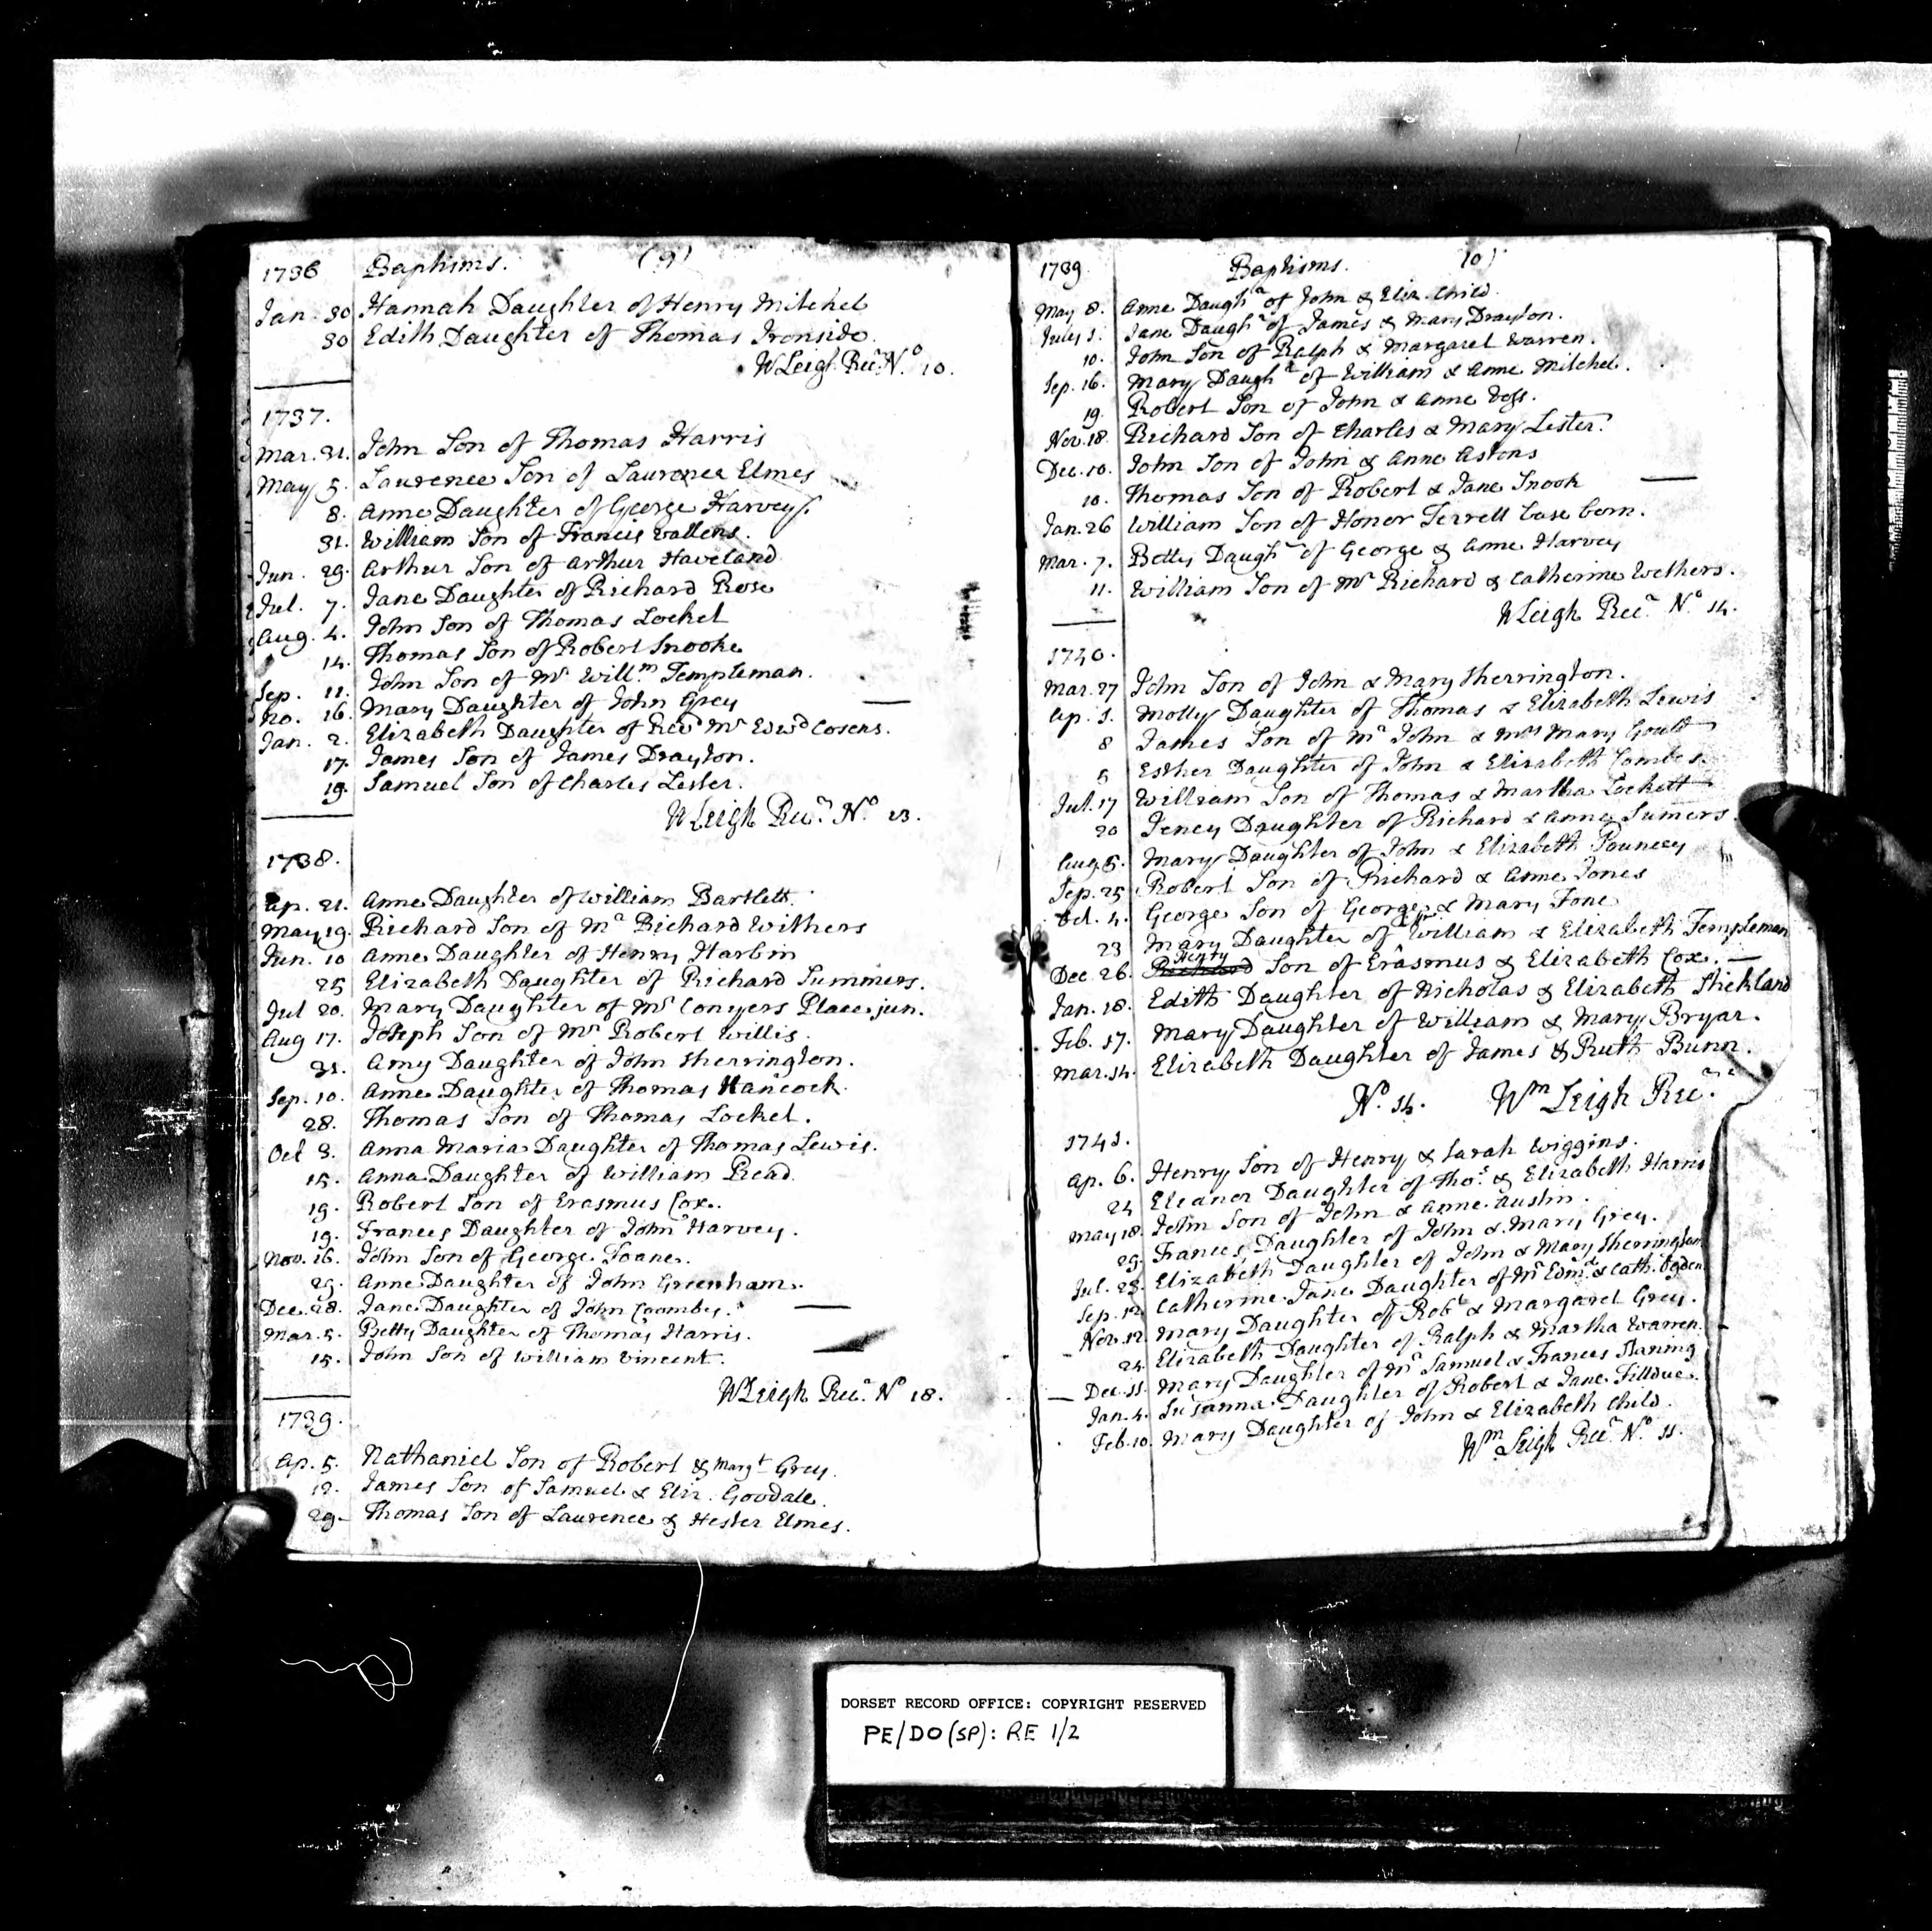 1736 Baptisms. (9)
Jan. 30 Hannah Daughter of Henry Mitchel
30 Edith Daughter of Thomas Ironside.
W Leigh Recr. No 10.
1737.
Mar. 31. John Son of Thomas Harris
May 5. Laurence Son of Laurence Elmes
8. Anne Daughter of George Harvey.
31. William Son of Francis Vallens.
Jun. 29. Arthur Son of Arthur Haveland
Jul. 7. Jane Daughter of Richard Rose
Aug. 4. John Son of Thomas Locket
14. Thomas Son of Robert Snooke
Sep. 11. John Son of Mr Willm Templeman.
No. 16. Mary Daughter of John Grey
Jan. 2. Elizabeth Daughter of Revd Mr Edwd Cosens.
17. James Son of James Drayton.
19. Samuel Son of Charles Lester.
W Leigh Recr. No 13.
1738.
Ap. 21. Anne Daughter of William Bartlett.
May 19. Richard Son of Mr Richard Withers
Jun. 10 Anne Daughter of Henry Harbin
25 Elizabeth Daughter of Richard Summers.
Jul 20. Mary Daughter of Mr Conyers Place jun.
Aug 17. Joseph Son of Mr Robert Willis.
31. Amy Daughter of John Sherrington.
Sep. 10. Anne Daughter of Thomas Hancock.
28. Thomas Son of Thomas Locket.
Oct 3. Anna Maria Daughter of Thomas Lewis.
15. Anna Daughter of William Read.
19. Robert Son of Erasmus Cox.
19. Frances Daughter of John Harvey.
Nov. 16. John Son of George Foane.
29. Anne Daughter of John Greenham.
Dec. 28. Jane Daughter of John Coombes.
Mar. 5. Betty Daughter of Thomas Harris.
15. John Son of William Vincent.
W Leigh Recr. No 18.
1739.
Ap. 5. Nathaniel Son of Robert & Margt Grey.
12. James Son of Samuel & Eliz. Goodale.
29. Thomas Son of Laurence & Hester Elmes.
1739. Baptisms. 10)
May 8. Anne Daughr of John & Eliz. Child.
July 1. Jane Daughr of James & Mary Drayton.
10. John Son of Ralph & Margaret Warren.
Sep. 16. Mary Daughr of William & Anne Mitchel.
19. Robert Son of John & Anne Voss.
Nov. 18. Richard Son of Charles & Mary Lester.
Dec. 10. John Son of John & Anne Astons
10. Thomas Son of Robert & Jane Snook
Jan. 26 William Son of Honor Terrell base born.
Mar. 7. Betty Daughr of George & Anne Harvey
11. William Son of Mr Richard & Catherine Wethers.
W Leigh Recr. No 14.
1740.
Mar. 27 John Son of John & Mary Sherrington.
Ap. 1. Molly Daughter of Thomas & Elizabeth Lewis
8 James Son of Mr John & Mrs Mary Gould
8 Esther Daughter of John & Elizabeth Combes.
Jul. 17 William Son of Thomas & Martha Lockett
20 Jeney Daughter of Richard & Anne Sumers.
Aug. 5. Mary Daughter of John & Elizabeth Pouncey
Sep. 25 Robert Son of Richard & Anne Jones
Oct. 4. George Son of George & Mary Fone
23 Mary Daughter of Mr William & Elizabeth Templeman
Dec. 26. Henry Son of Erasmus & Elizabeth Cox.
Jan. 18. Edith Daughter of Nicholas & Elizabeth Stickland
Feb. 17. Mary Daughter of William & Mary Bryar.
Mar. 14. Elizabeth Daughter of James & Ruth Bunn.
No. 14. Wm Leigh Recr.
1741.
Ap. 6. Henry Son of Henry & Sarah Wiggins.
24 Eleanor Daughter of Thos. & Elizabeth Harris
May 18. John Son of John & Anne Austin.
29. Frances Daughter of John & Mary Grey.
Jul. 23. Elizabeth Daughter of John & Mary Sherrington
Sep. 12. Catherine Jane Daughter of Mr Edmd. & Cath. Ogden.
Nov. 12. Mary Daughter of Robt & Margaret Grey.
24. Elizabeth Daughter of Ralph & Martha Warren.
Dec. 11. Mary Daughter of Mr Samuel & Frances Haning
Jan. 4. Susanna Daughter of Robert & Jane Filldue.
Feb. 10. Mary Daughter of John & Elizabeth Child.
Wm Leigh Recr. No. 11.
DORSET RECORD OFFICE: COPYRIGHT RESERVED
PE/DO(SP): RE 1/2